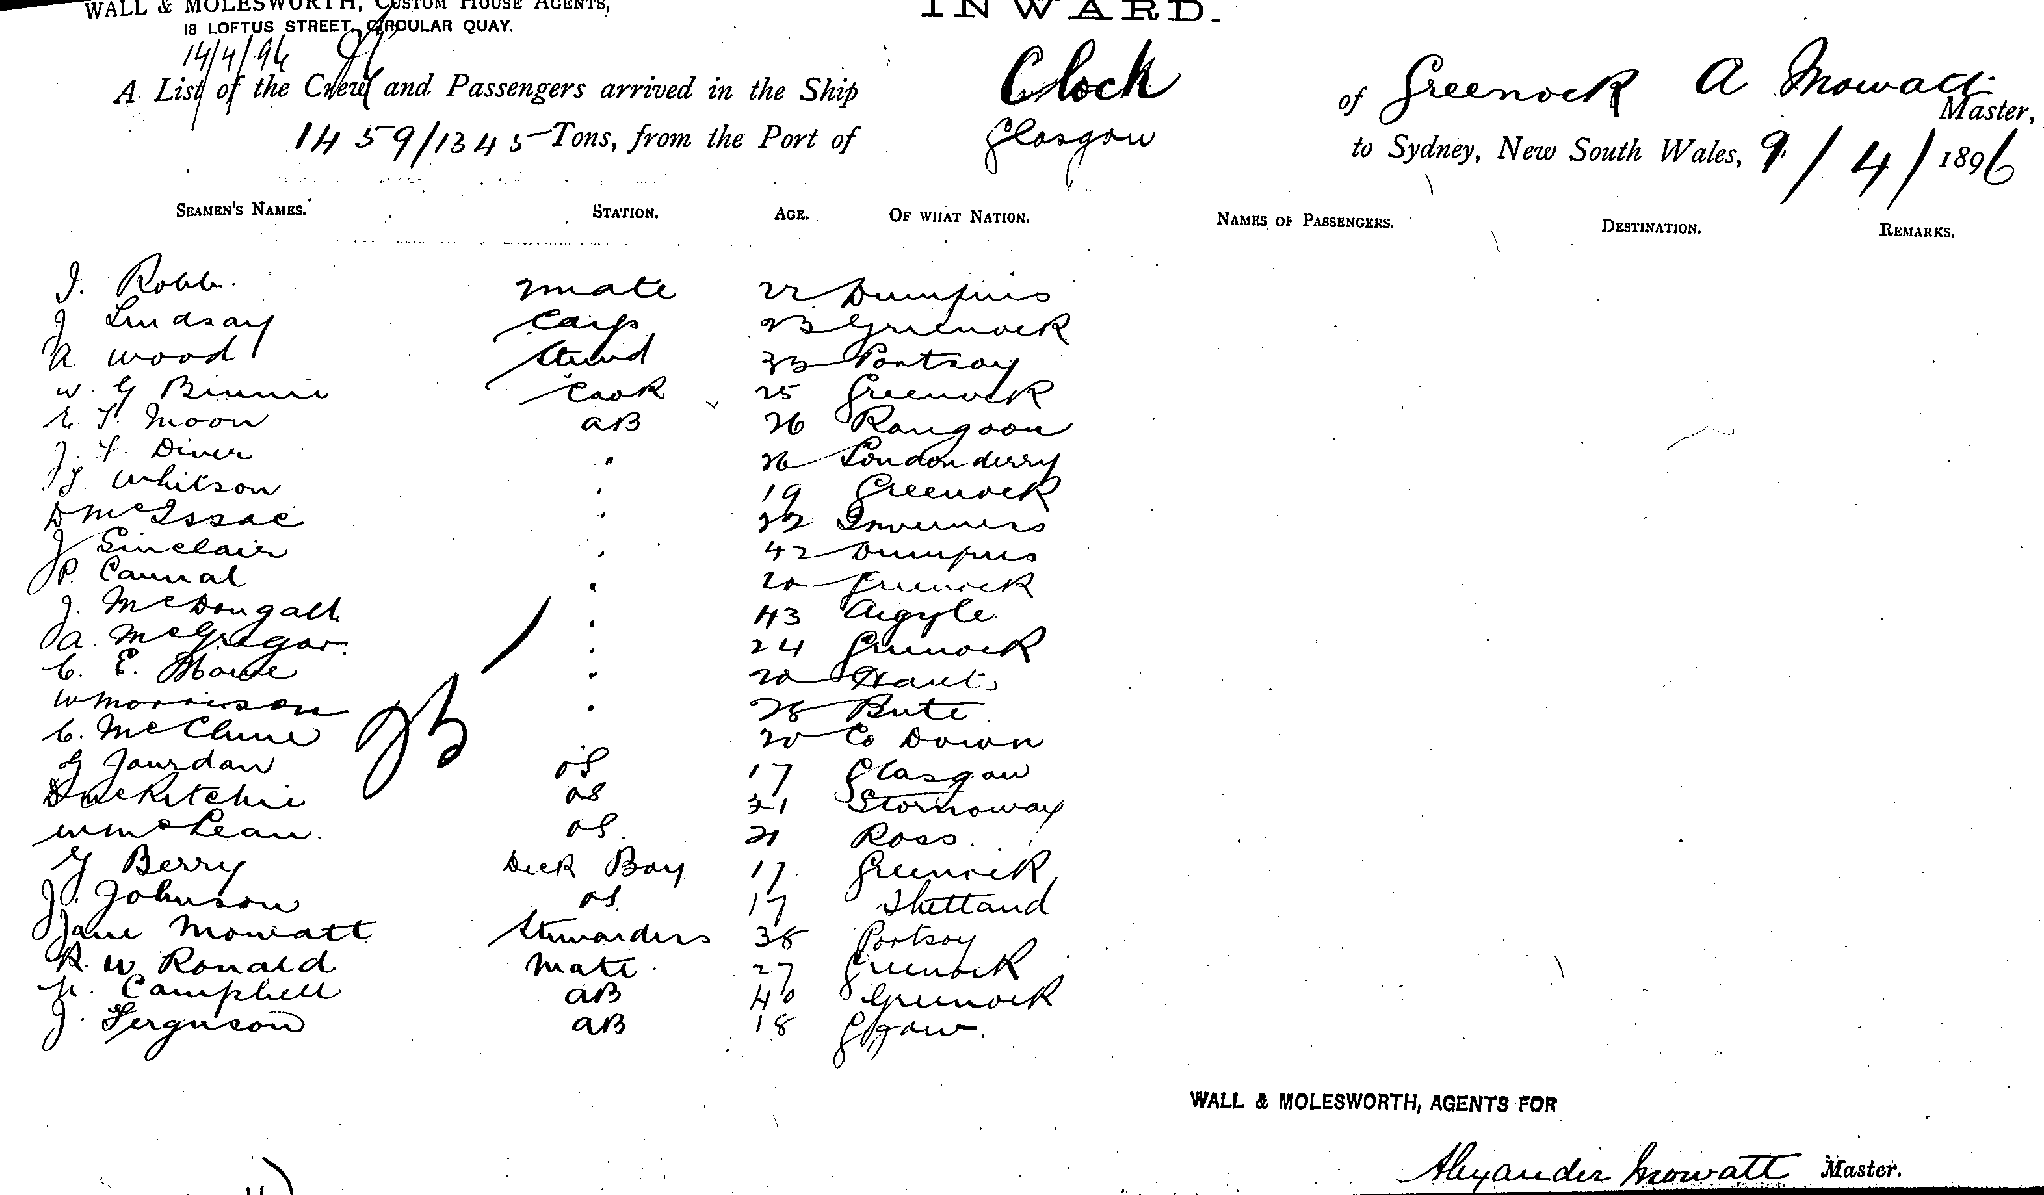 WALL & MOLESWORTH, CUSTOM HOUSE AGENTS,
18 LOFTUS STREET, CIRCULAR QUAY.
INWARD.
14/4/96
A List of the Crew and Passengers arrived in the Ship Clock of Greenock A Mowatt Master,
1459/1345 Tons, from the Port of Glasgow to Sydney, New South Wales, 9/4/1896
SEAMEN'S NAMES. STATION. AGE. OF WHAT NATION. NAMES OF PASSENGERS. DESTINATION. REMARKS.
J. Robb. mate 22 Dumfries
J Lindsay Carp 23 Greenock
A Wood Stewd 33 Portsoy
W. G Binnie Cook 25 Greenock
Moon AB 26 Rangoon
J. Y. Diver " 26 Londonderry
J Whitson " 19 Greenock
D McIssac " Inverness
J Sinclair " 42 Dumfries
P. " 20 Greenock
J. McDougall " 43 Argyle
A. McGregor " 24 Greenock
C. E. " 20 Hants
W Morrison " 28 Bute
C. McClune " 20 Co Down
G Jourdan OS 17 Glasgow
D McRitchie OS 21 Stornoway
W McLean. OS. 21 Ross.
G Berry Deck Boy 17. Greenock
J. Johnson OS. 17 Shetland
Jane Mowatt Stewardess 38 Portsoy
R. W Ronald Mate. 27 Greenock
Campbell AB 40 Greenock
J. Ferguson AB 18 Ggow.
WALL & MOLESWORTH, AGENTS FOR
Alexander Mowatt Master.